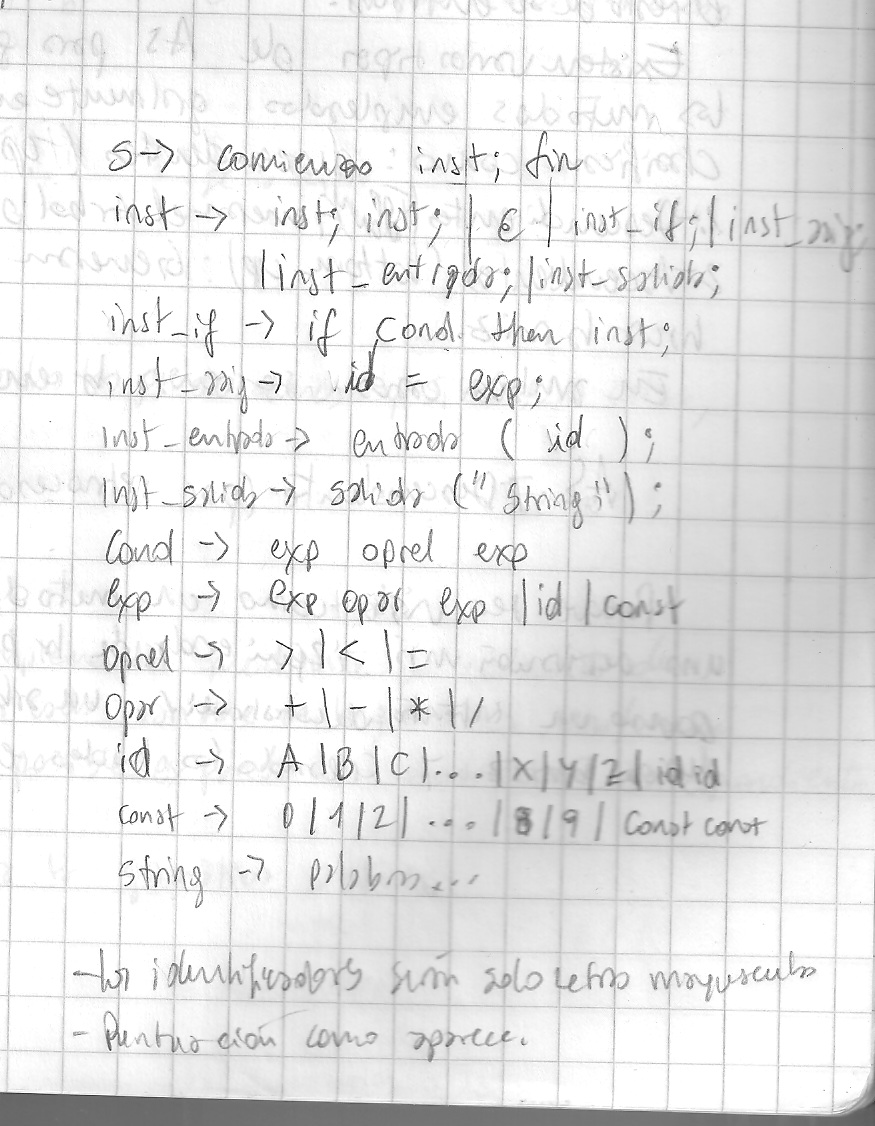 S → comienzo inst; fin
inst → inst; inst; | ϵ | inst_if; | inst_asig;
| inst_entrada; | inst_salida;
inst_if → if cond then inst;
inst_asig → id = exp;
inst_entrada → entrada ( id );
inst_salida → salida (" string ");
cond → exp oprel exp
exp → exp opar exp | id | const
oprel → > | < | =
opar → + | - | * | /
id → A | B | C | ... | X | Y | Z | id id
const → 0 | 1 | 2 | ... | 8 | 9 | const const
string → palabra...
- los identificadores serán solo letras mayusculas
- Puntuación como aparece.